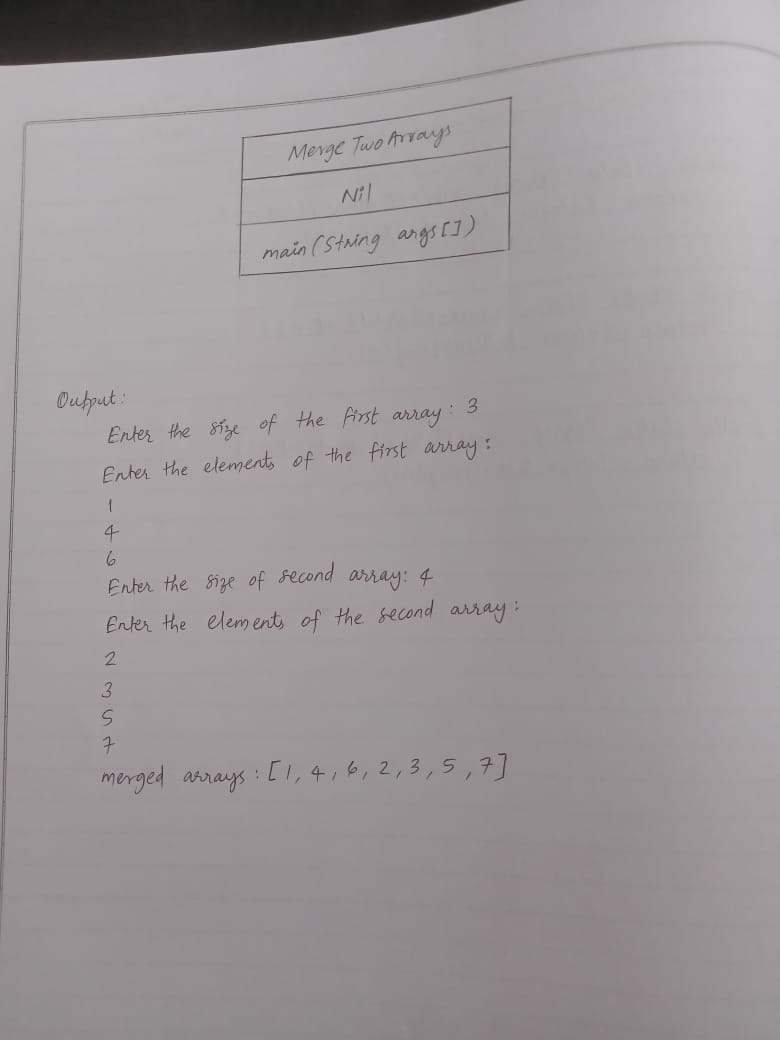 Merge Two Arrays
Nil
main (String args [])
Output:
Enter the size of the first array: 3
Enter the elements of the first array:
1
4
6
Enter the size of second array: 4
Enter the elements of the second array:
2
3
5
7
merged arrays: [1, 4, 6, 2, 3, 5, 7]